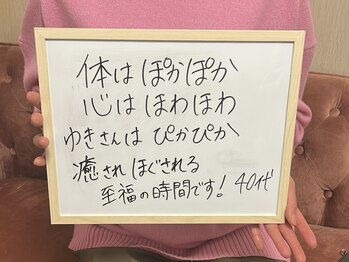 体はぽかぽか
心はほわほわ
ゆきさんはぴかぴか
癒されほぐされる
至福の時間です! 40代